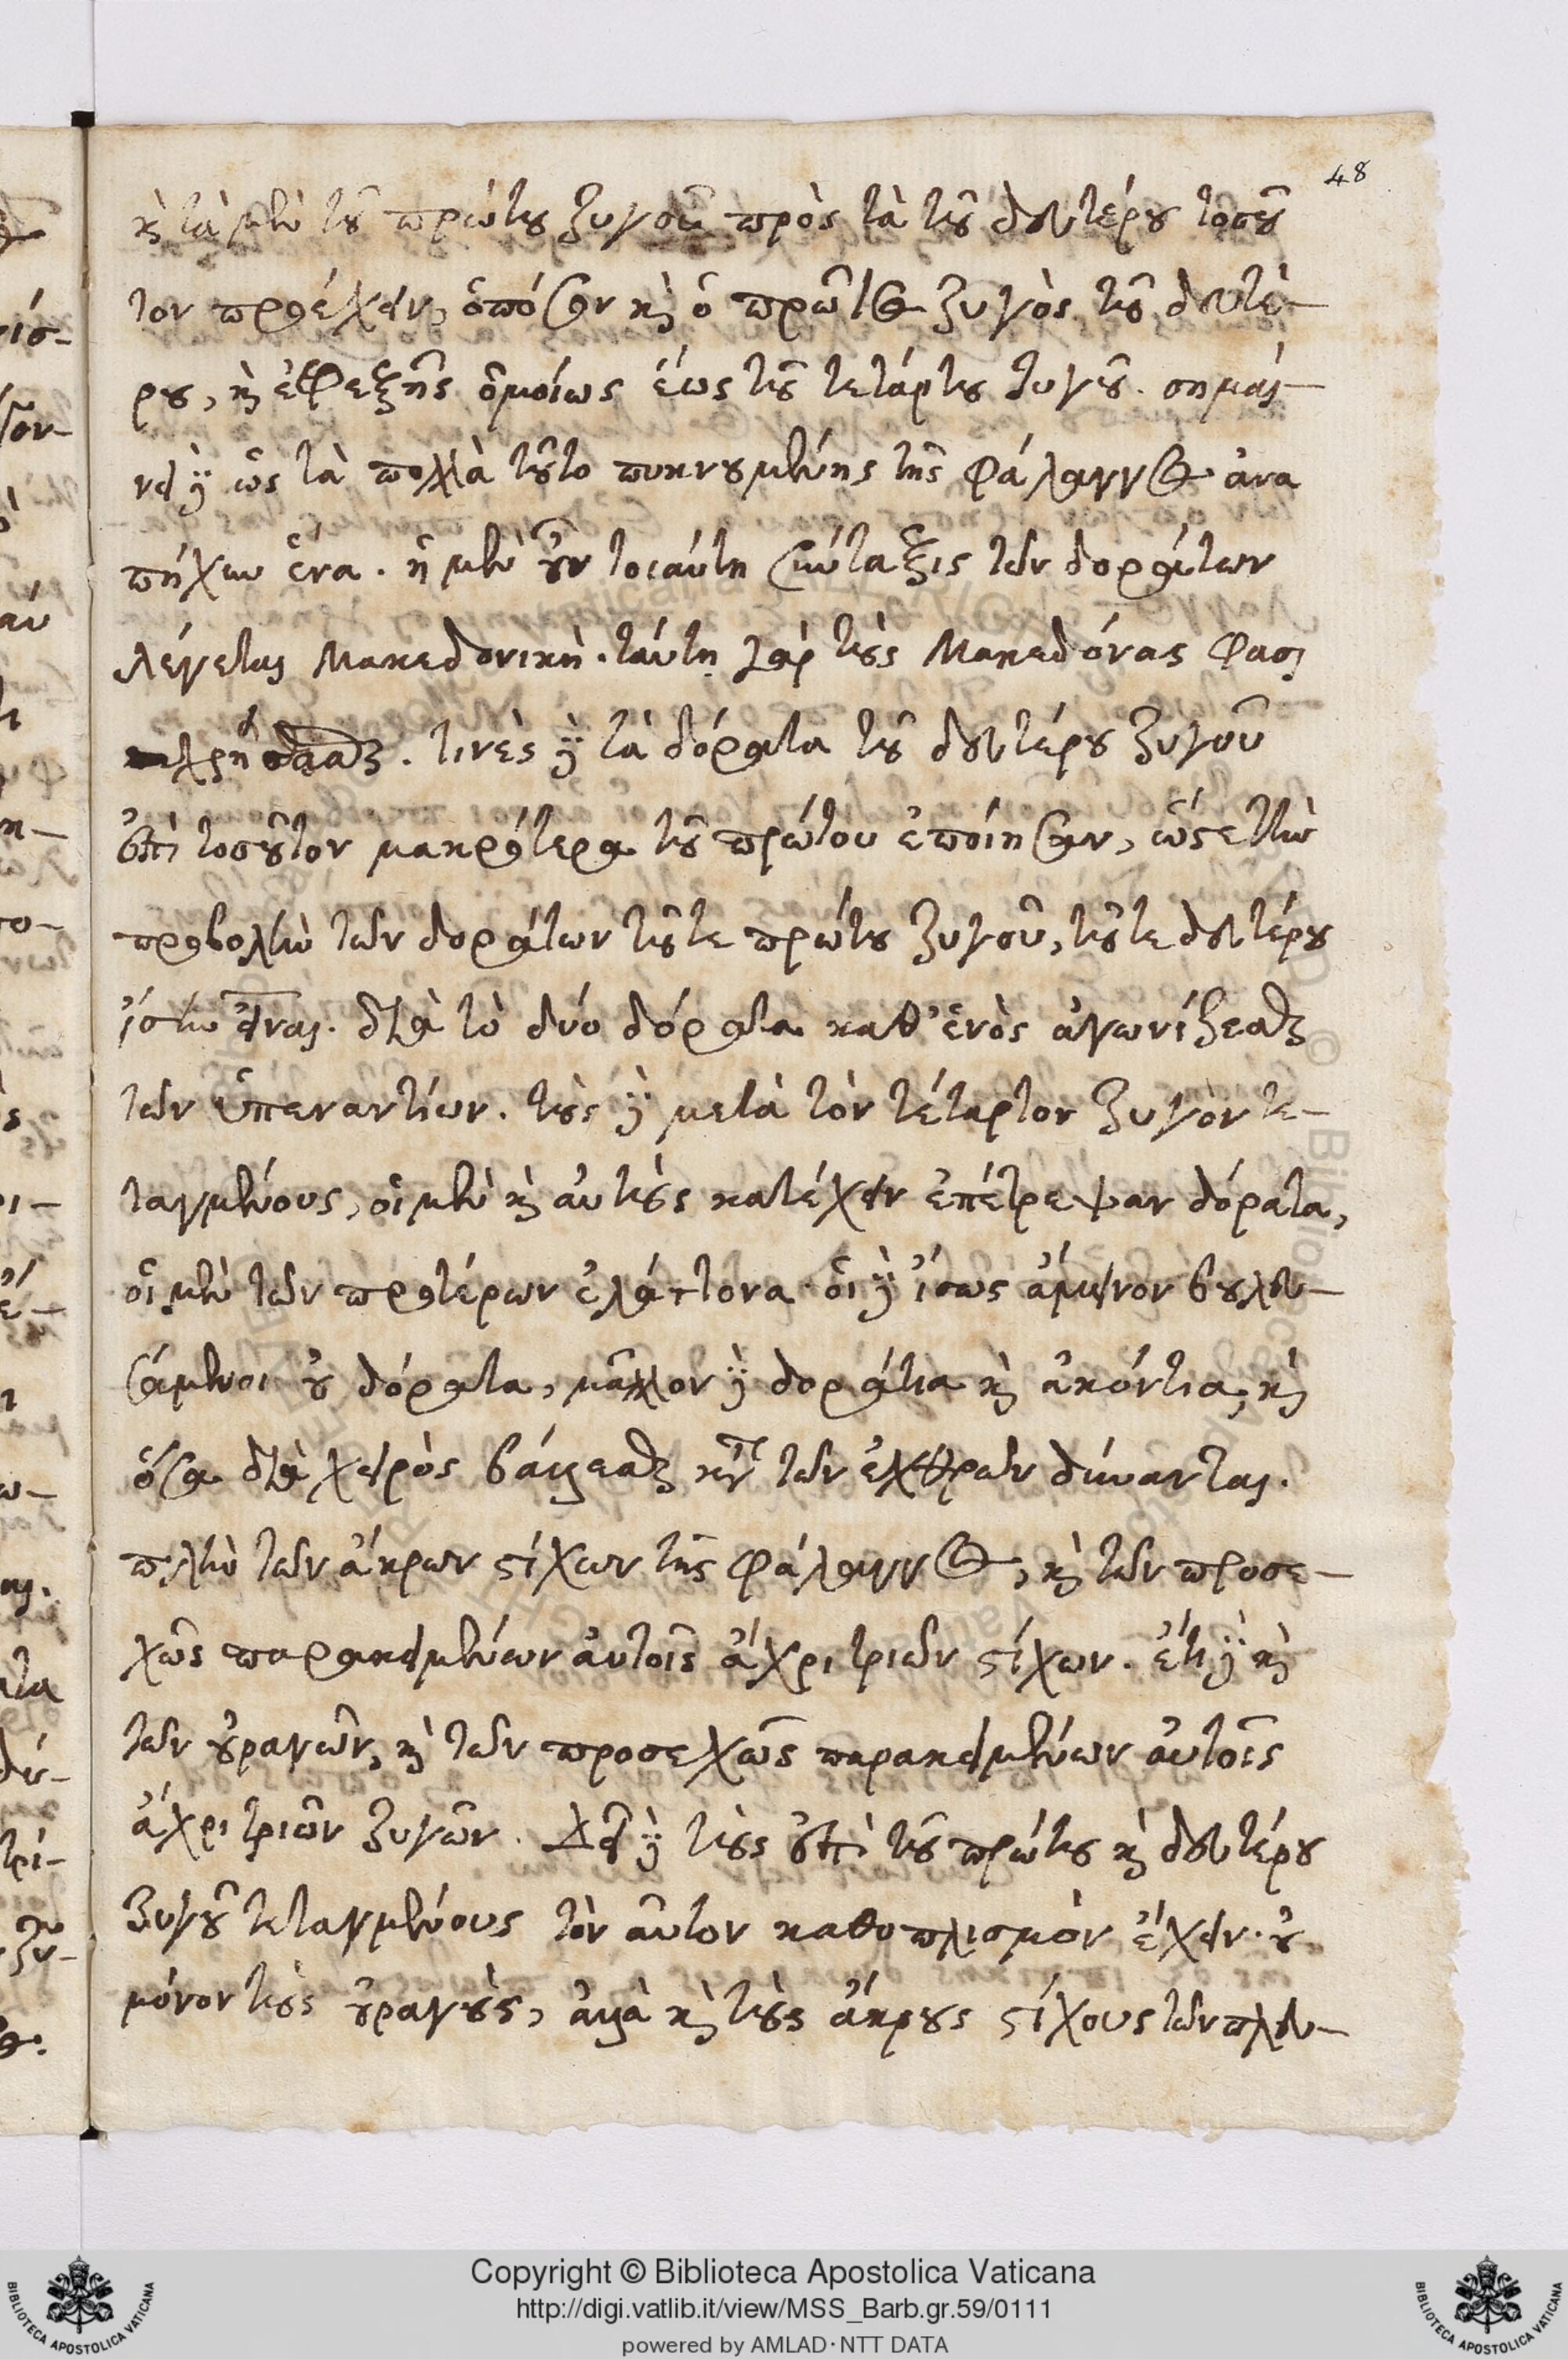 48
καὶ τὰ μὲν τοῦ πρώτου ζυγοῦ πρὸς τὰ τοῦ δευτέρου τοσοῦ
τον προέχειν, ὁπόσον καὶ ὁ πρῶτος ζυγὸς τοῦ δευτέ-
ρου, καὶ ἐφεξῆς ὁμοίως ἕως τοῦ τετάρτου ζυγοῦ. σημαί-
νει δὲ ὡς τὰ πολλὰ τοῦτο πυκνουμένης τῆς φάλαγγος ἀνα
πήχυν ἕνα. ἡ μὲν οὖν τοιαύτη σύνταξις τῶν δοράτων
λέγεται Μακεδονικὴ. ταύτῃ γὰρ τοὺς Μακεδόνας φασι
χρῆσθαι. τινὲς δὲ τὰ δόρατα τοῦ δευτέρου ζυγοῦ
ἐπὶ τοσοῦτον μακρότερα τοῦ πρώτου ἐποίησαν, ὥστε τὴν
προβολὴν τῶν δοράτων τοῦ τε πρώτου ζυγοῦ, τοῦ τε δευτέρου
ἴσην εἶναι. διὰ τὸ δύο δόρατα καθ' ἑνὸς ἀγωνίζεσθαι
τῶν ὑπεναντίων. τοὺς δὲ μετὰ τὸν τέταρτον ζυγὸν τε-
ταγμένους, οἱ μὲν καὶ αὐτοὺς κατέχειν ἐπέτρεψαν δόρατα,
οἱ μὲν τῶν προτέρων ἐλάττονα· οἱ δὲ ἴσως ἄμεινον βουλευ-
σάμενοι οὐ δόρατα, μᾶλλον δὲ δοράτια καὶ ἀκόντια, καὶ
ὅσα διὰ χειρὸς βάλλεσθαι κατὰ τῶν ἐχθρῶν δύνανται.
πλὴν τῶν ἄκρων στίχων τῆς φάλαγγος, καὶ τῶν προσε-
χῶς παρακειμένων αὐτοῖς ἄχρι τριῶν στίχων. ἔτι δὲ καὶ
τῶν οὐραγῶν, καὶ τῶν προσεχῶς παρακειμένων αὐτοῖς
ἄχρι τριῶν ζυγῶν. Δεῖ δὲ τοὺς ἐπὶ τοῦ πρώτου καὶ δευτέρου
ζυγοῦ τεταγμένους τὸν αὐτον καθοπλισμὸν ἔχειν. οὐ
μόνον τοὺς οὐραγοὺς, ἀλλὰ καὶ τοὺς ἄκρους στίχους τῶν πλευ-
Copyright © Biblioteca Apostolica Vaticana
http://digi.vatlib.it/view/MSS_Barb.gr.59/0111
powered by AMLAD·NTT DATA
BIBLIOTECA APOSTOLICA VATICANA
BIBLIOTECA APOSTOLICA VATICANA